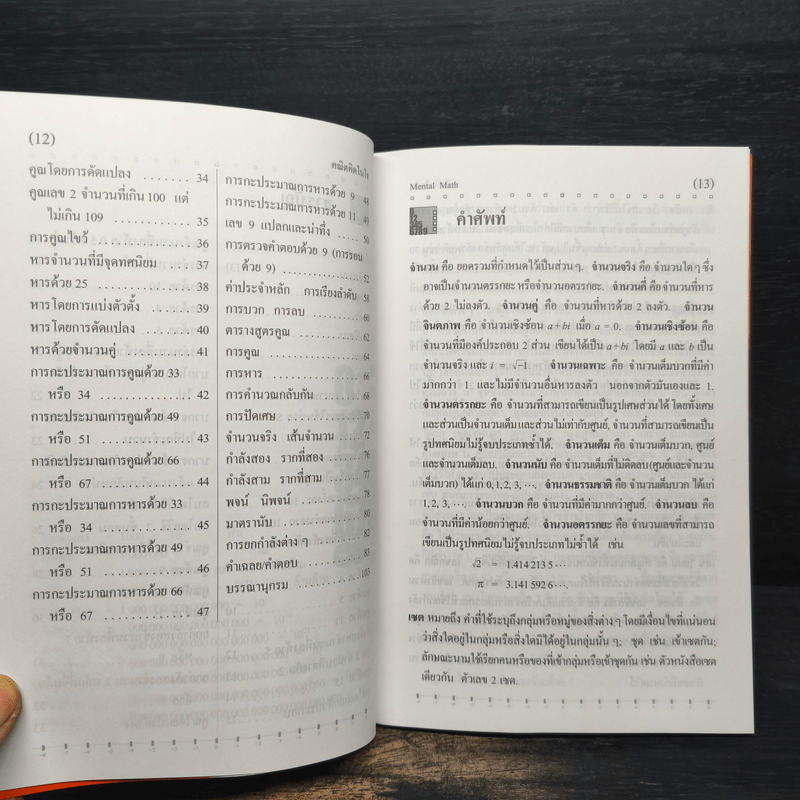 (12)
คณิตคิดในใจ
คูณโดยการดัดแปลง ....... 34
คูณเลข 2 จำนวนที่เกิน 100 แต่
ไม่เกิน 109 ............ 35
การคูณไขว้ ............ 36
หารจำนวนที่มีจุดทศนิยม ..... 37
หารด้วย 25 ............ 38
หารโดยการแบ่งตัวตั้ง ....... 39
หารโดยการดัดแปลง ....... 40
หารด้วยจำนวนคู่ ......... 41
การกะประมาณการคูณด้วย 33
หรือ 34 ............... 42
การกะประมาณการคูณด้วย 49
หรือ 51 ............... 43
การกะประมาณการคูณด้วย 66
หรือ 67 ............... 44
การกะประมาณการหารด้วย 33
หรือ 34 ............... 45
การกะประมาณการหารด้วย 49
หรือ 51 ............... 46
การกะประมาณการหารด้วย 66
หรือ 67 ............... 47
การกะประมาณการหารด้วย 9 48
การกะประมาณการหารด้วย 11 49
เลข 9 แปลกและน่าทึ่ง ..... 50
การตรวจคำตอบด้วย 9 (การรอน
ด้วย 9) ............... 52
ค่าประจำหลัก การเรียงลำดับ . 58
การบวก การลบ .......... 60
ตารางสูตรคูณ ............ 62
การคูณ ................ 64
การหาร ................ 66
การคำนวณกลับกัน ......... 68
การปัดเศษ .............. 70
จำนวนจริง เส้นจำนวน ..... 72
กำลังสอง รากที่สอง ....... 76
กำลังสาม รากที่สาม ....... 77
พจน์ นิพจน์ ............ 78
มาตรานับ .............. 80
การยกกำลังต่าง ๆ ......... 82
คำเฉลย/คำตอบ ........... 83
บรรณานุกรม ............. 103
Mental Math
(13)
คำศัพท์
จำนวน คือ ยอดรวมที่กำหนดไว้เป็นส่วน ๆ. จำนวนจริง คือ จำนวนใด ๆ ซึ่ง
อาจเป็นจำนวนตรรกยะ หรือจำนวนอตรรกยะ. จำนวนคี่ คือ จำนวนที่หาร
ด้วย 2 ไม่ลงตัว. จำนวนคู่ คือ จำนวนที่หารด้วย 2 ลงตัว. จำนวน
จินตภาพ คือ จำนวนเชิงซ้อน a+bi เมื่อ a = 0. จำนวนเชิงซ้อน คือ
จำนวนที่มีองค์ประกอบ 2 ส่วน เขียนได้เป็น a+bi โดยมี a และ b เป็น
จำนวนจริง และ i = √-1 จำนวนเฉพาะ คือ จำนวนเต็มบวกที่มีค่า
ค่ามากกว่า 1 และไม่มีจำนวนอื่นหารลงตัว นอกจากตัวมันเองและ 1.
จำนวนตรรกยะ คือ จำนวนที่สามารถเขียนเป็นรูปเศษส่วนได้ โดยทั้งเศษ
และส่วนเป็นจำนวนเต็ม และส่วนไม่เท่ากับศูนย์, จำนวนที่สามารถเขียนเป็น
รูปทศนิยมไม่รู้จบประเภทซ้ำได้. จำนวนเต็ม คือ จำนวนเต็มบวก, ศูนย์
และจำนวนเต็มลบ. จำนวนนับ คือ จำนวนเต็มที่ไม่ติดลบ (ศูนย์และจำนวน
เต็มบวก) ได้แก่ 0, 1, 2, 3, ···. จำนวนธรรมชาติ คือ จำนวนเต็มบวก ได้แก่
1, 2, 3, ···. จำนวนบวก คือ จำนวนที่มีค่ามากกว่าศูนย์. จำนวนลบ คือ
จำนวนที่มีค่าน้อยกว่าศูนย์. จำนวนอตรรกยะ คือ จำนวนเลขที่สามารถ
เขียนเป็นรูปทศนิยมไม่รู้จบประเภทไม่ซ้ำได้ เช่น
√2 = 1.414 213 5 ···
π = 3.141 592 6 ···.
เซต หมายถึง คำที่ใช้ระบุถึงกลุ่มหรือหมู่ของสิ่งต่าง ๆ โดยมีเงื่อนไขที่แน่นอน
ว่าสิ่งใดอยู่ในกลุ่มหรือสิ่งใดมิได้อยู่ในกลุ่มนั้น ๆ; ชุด เช่น เข้าเซตกัน;
ลักษณะนามใช้เรียกคนหรือของที่เข้ากลุ่มหรือเข้าชุดกัน เช่น ตัวหนังสือเซต
เดียวกัน ตัวเลข 2 เซต.